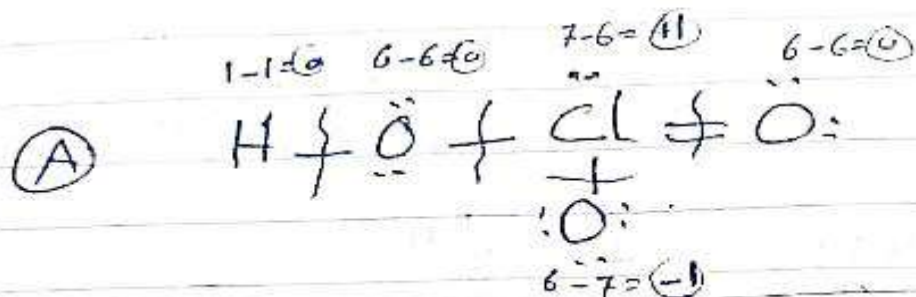 1-1=0 6-6=0 7-6=+1 6-6=0
A H O Cl O
O
6-7=-1